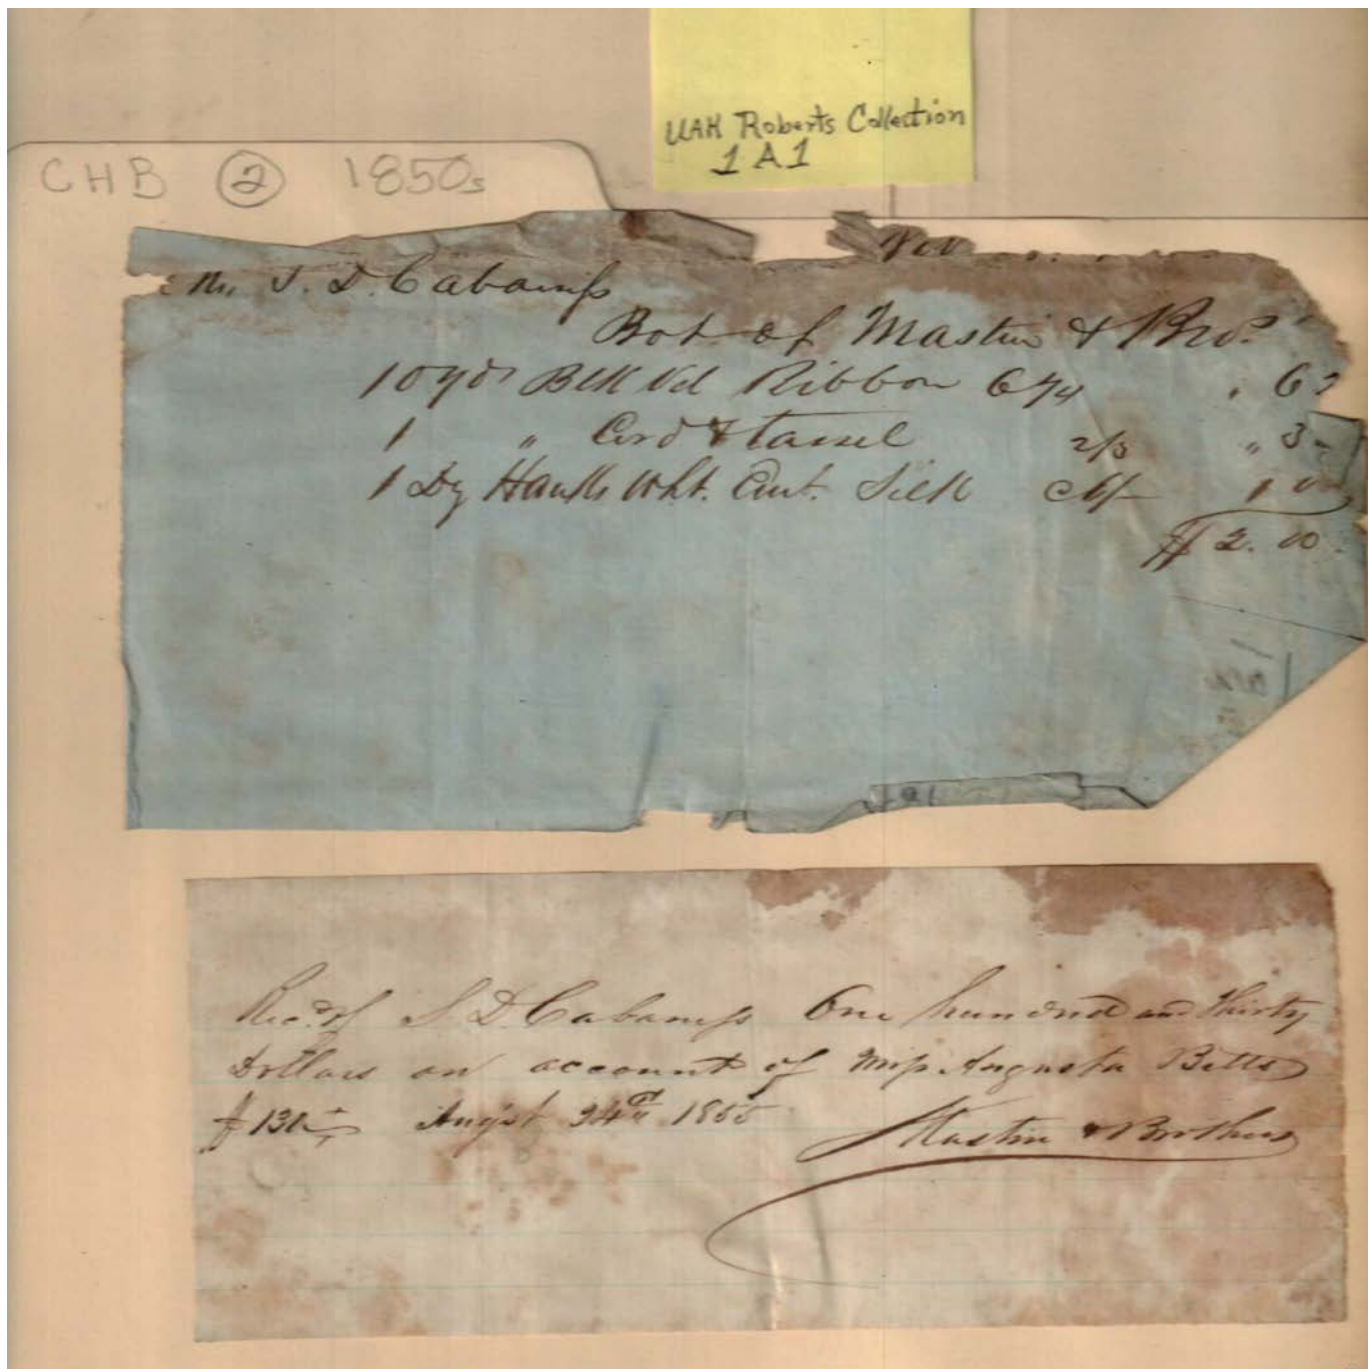 UAH Roberts Collection
1 A 1
CHB 2 1850s
S. D. Cabaniss
Bot of Mastin & Bro.
10 yds Blk Vel Ribbon 6¼
1 " Cord & tassel
1 Dz Hanks Wht. Silk
$2.00
Recd of S. D. Cabaniss One hundred and thirty
Dollars on account of Miss Augusta Bitts
$130 August 24th 1855 Mastin & Brothers